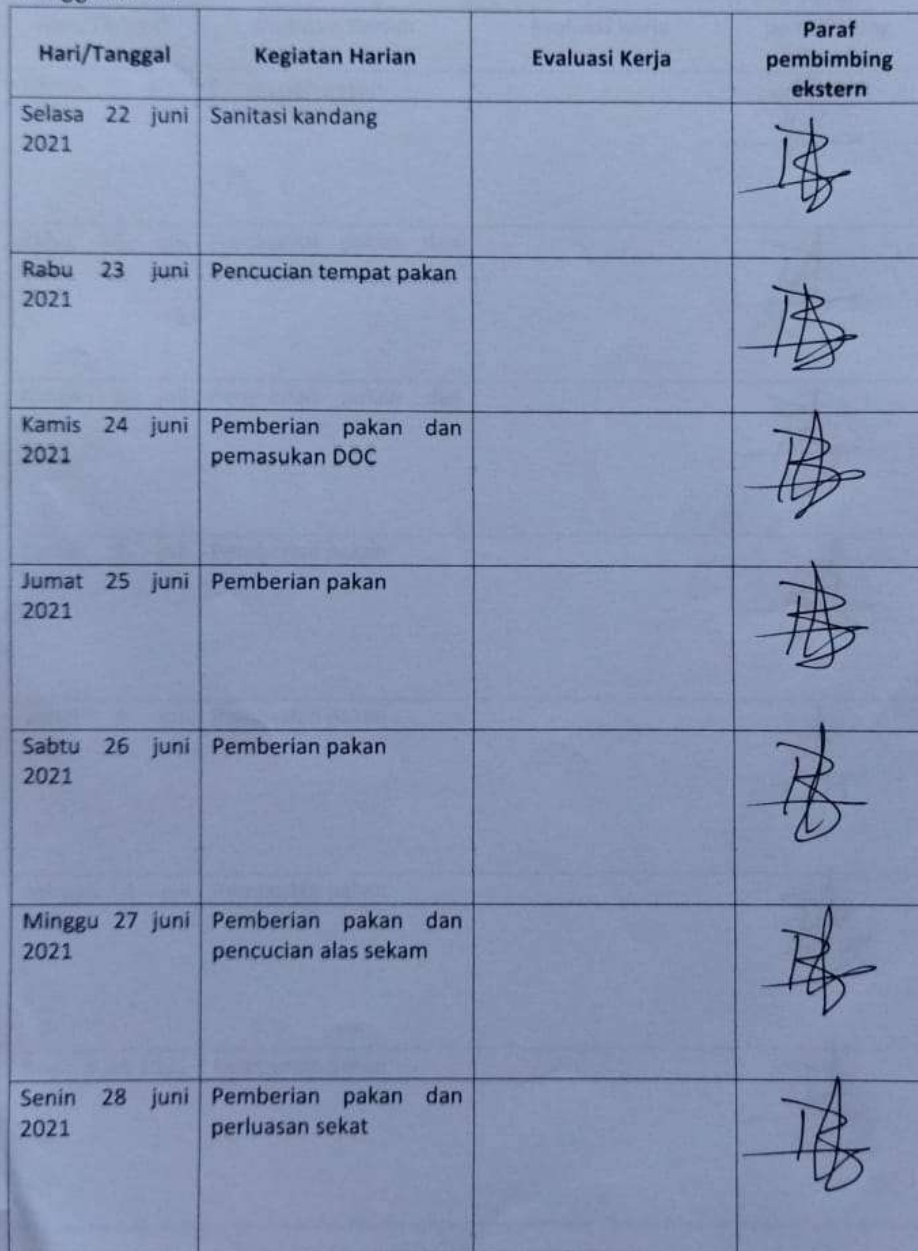 Hari/Tanggal
Kegiatan Harian
Evaluasi Kerja
Paraf
pembimbing
ekstern
Selasa 22 juni
2021
Sanitasi kandang
Rabu 23 juni
2021
Pencucian tempat pakan
Kamis 24 juni
2021
Pemberian pakan dan
pemasukan DOC
Jumat 25 juni
2021
Pemberian pakan
Sabtu 26 juni
2021
Pemberian pakan
Minggu 27 juni
2021
Pemberian pakan dan
pencucian alas sekam
Senin 28 juni
2021
Pemberian pakan dan
perluasan sekat